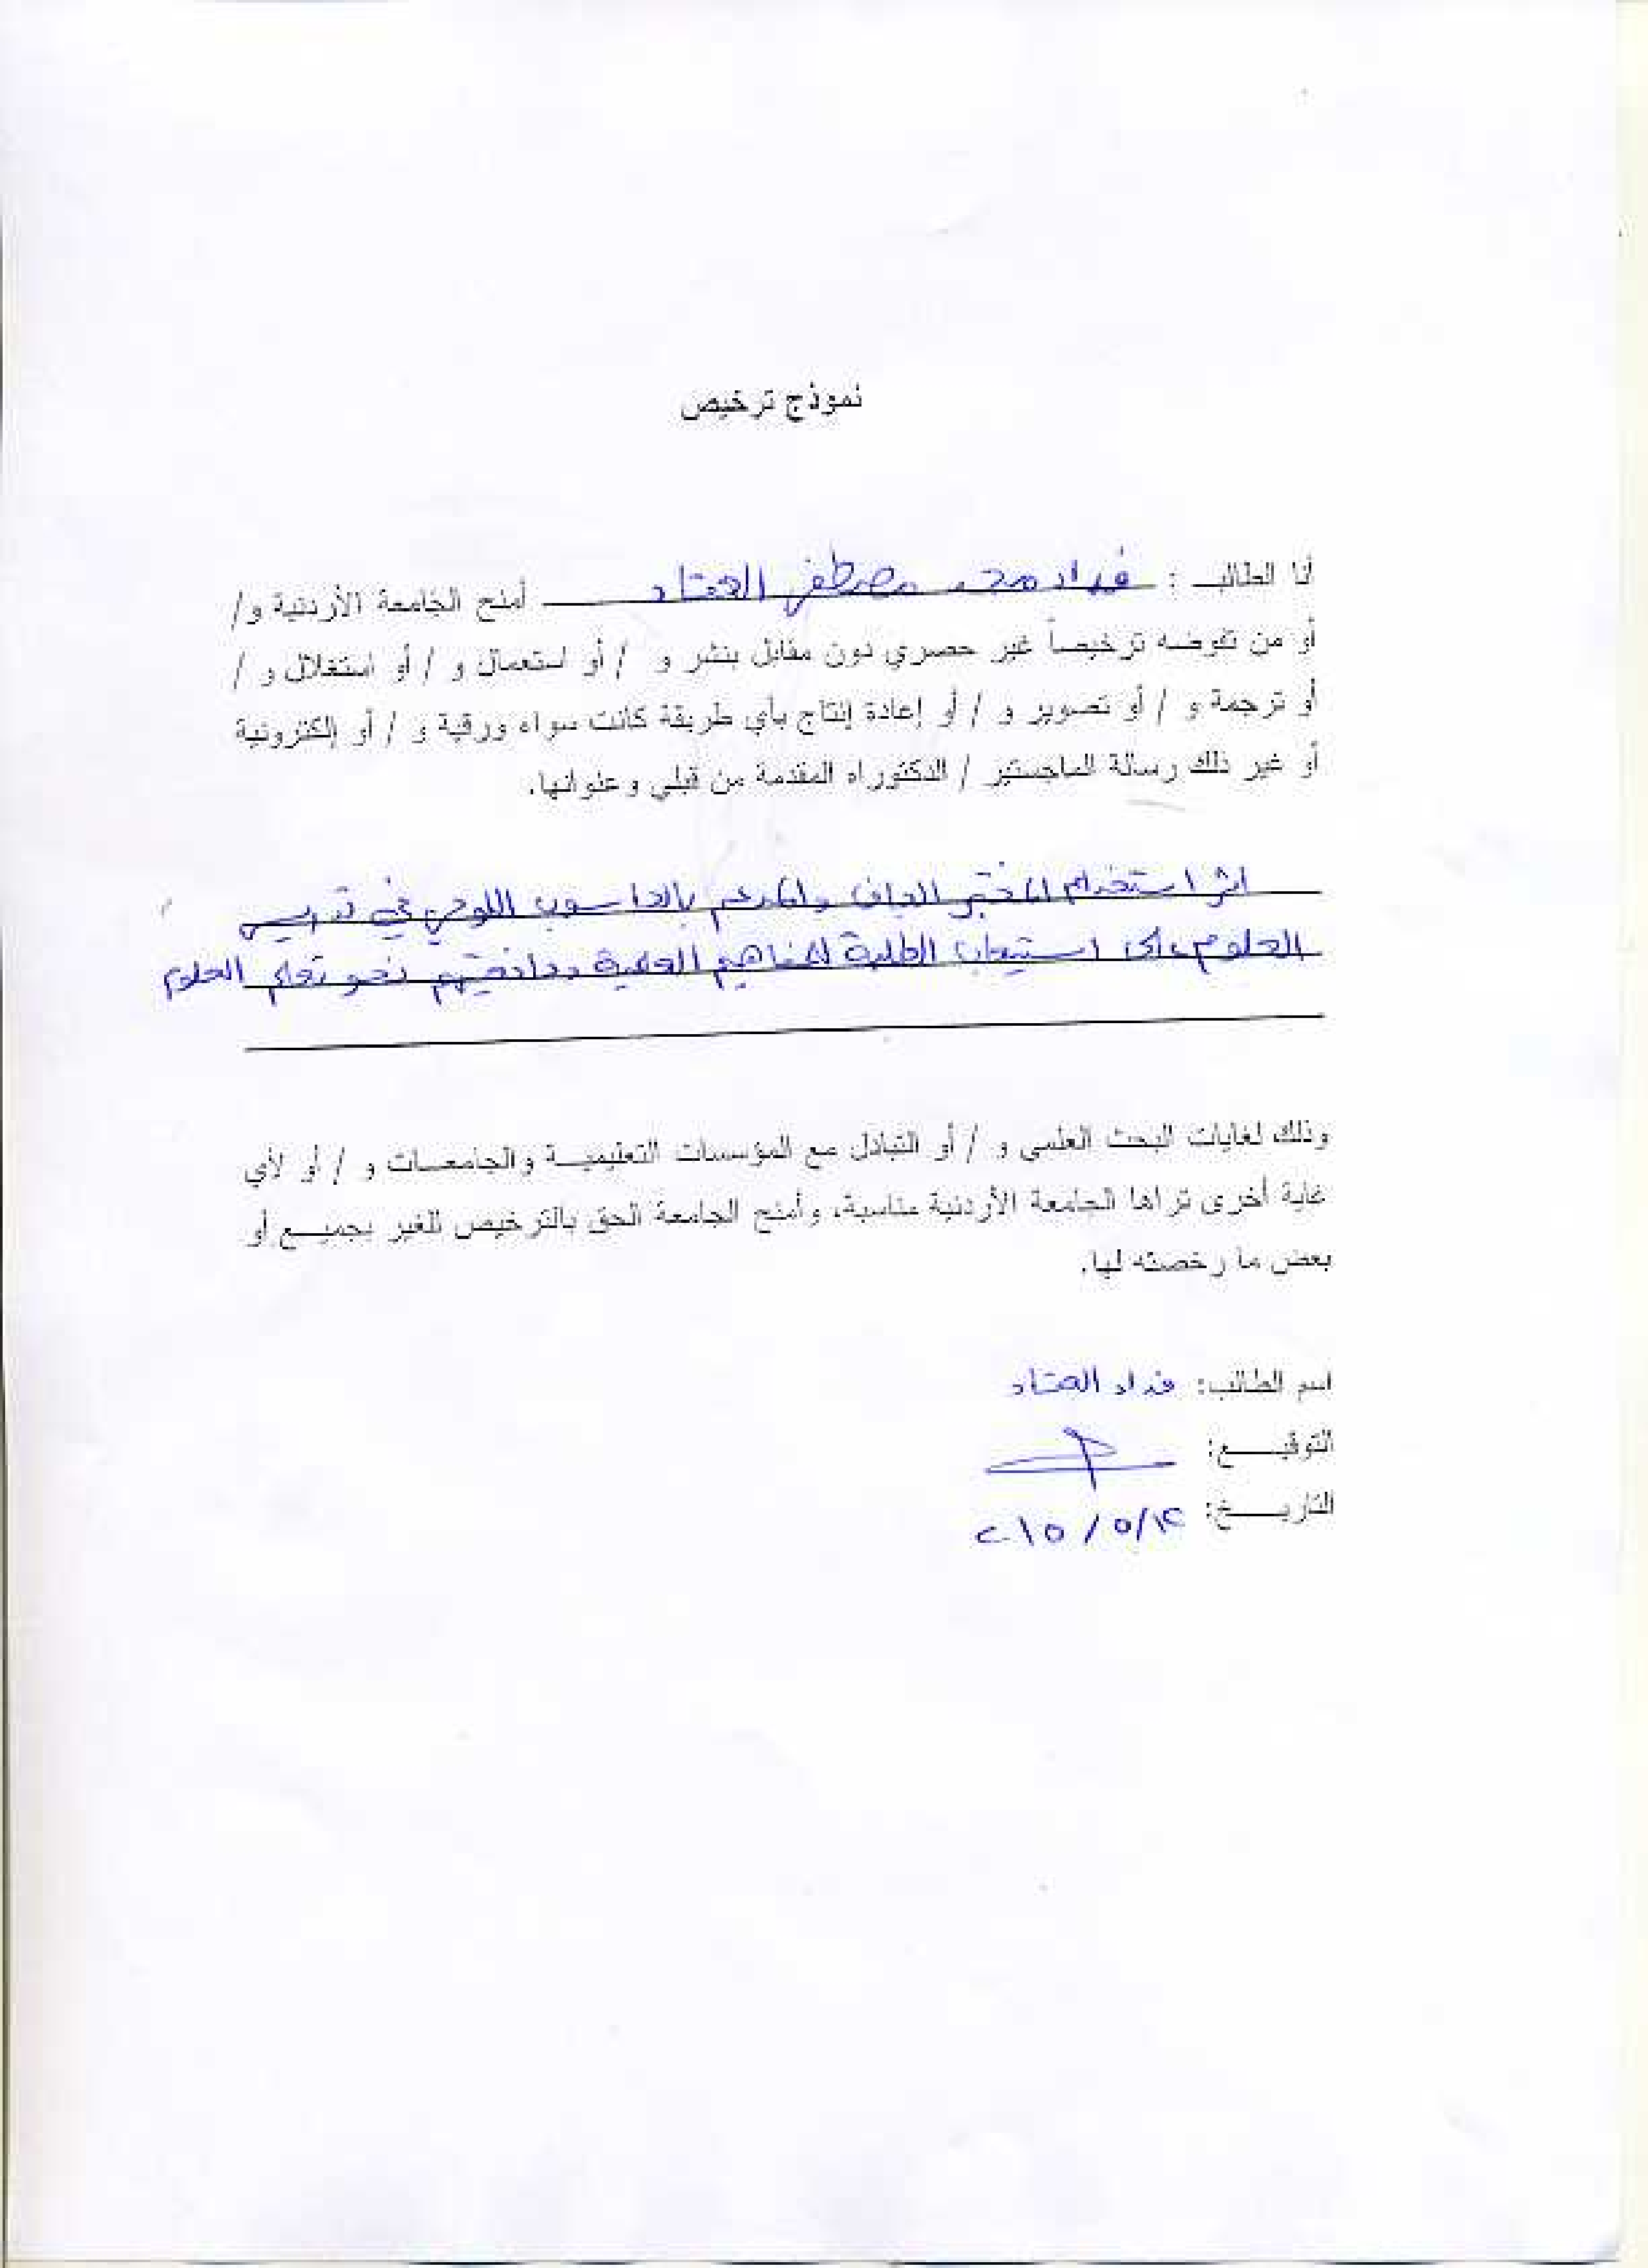 نموذج ترخيص
أنا الطالب : محمد مصطفى العقاد أمنح الجامعة الأردنية و/
أو من تفوضه ترخيصاً غير حصري دون مقابل بنشر و / أو استعمال و / أو استغلال و /
أو ترجمة و / أو تصوير و / أو إعادة إنتاج بأي طريقة كانت سواء ورقية و / أو إلكترونية
أو غير ذلك رسالة الماجستير / الدكتوراه المقدمة من قبلي وعنوانها.
اثر استخدام المختبر الجاف والمدعم بالحاسوب اللوحي في تدريس
العلوم على استيعاب الطلبة للمفاهيم العلمية ودافعيتهم نحو تعلم العلوم
وذلك لغايات البحث العلمي و / أو التبادل مع المؤسسات التعليمية والجامعات و / أو لأي
غاية أخرى تراها الجامعة الأردنية مناسبة، وأمنح الجامعة الحق بالترخيص للغير بجميع أو
بعض ما رخصته لها.
اسم الطالب: العقاد
التوقيع:
التاريخ: